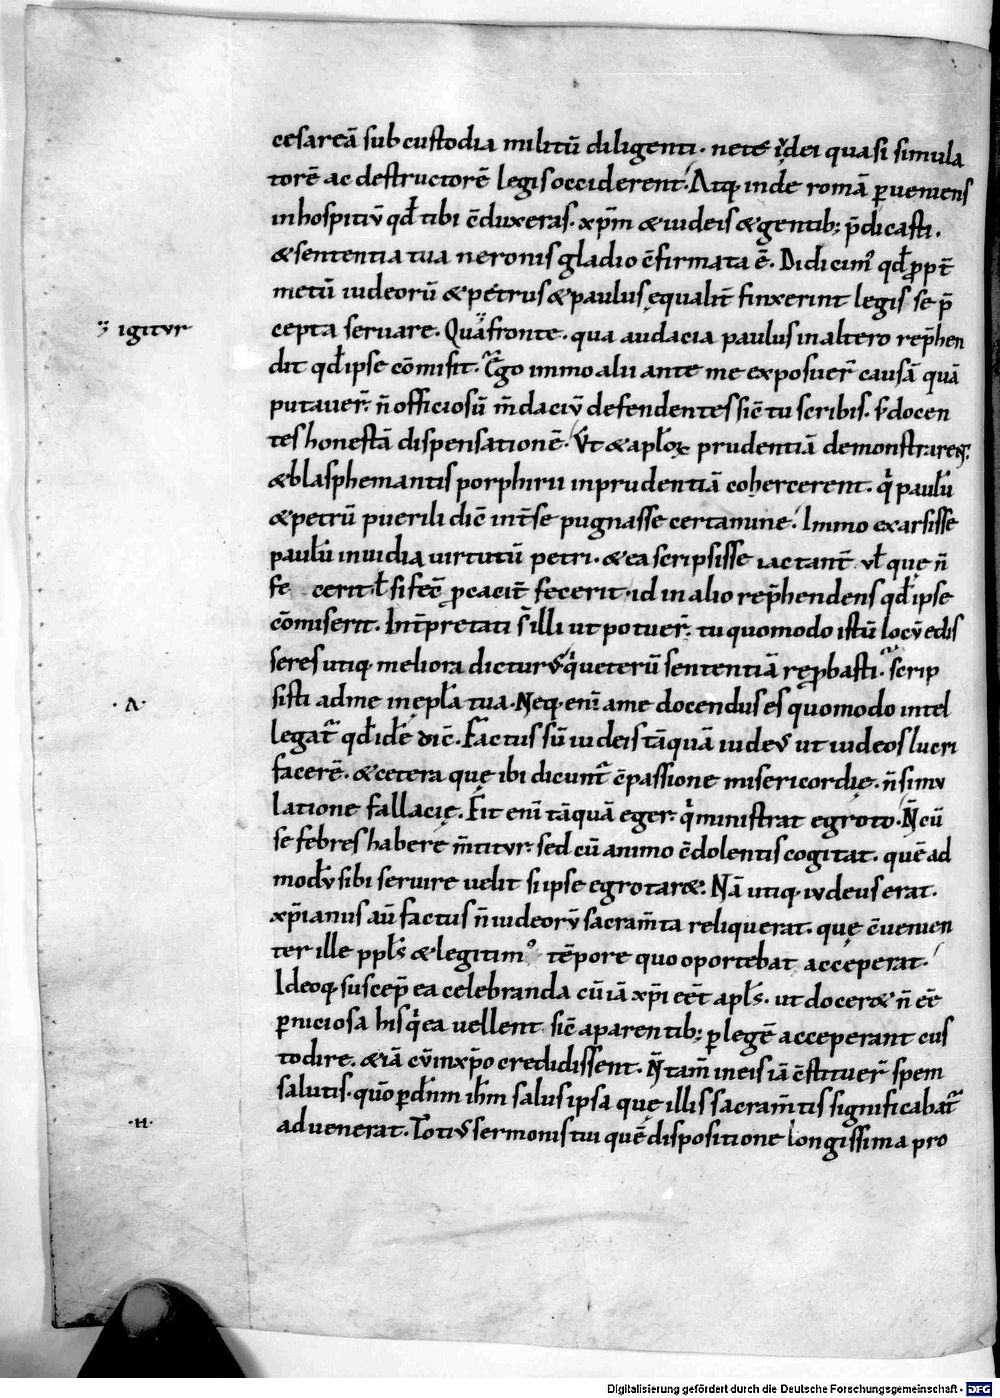 cesareã sub custodia militũ diligenti. ne te iudei quasi simula
torẽ ac destructorẽ legis occiderent. Atq; inde romã ꝑueniens
in hospitiũ qđ tibi cõduxeras. xp̃m & iudeis & gentib; p̃dicasti.
& sententia tua neronis gladio cõfirmata ẽ. Didicim᾽ qđ ꝓpt̃
metũ iudeorũ & petrus & paulus ęqualit̃ finxerint legis se p̃
igitvr
cepta seruare. Qua fronte. qua audacia paulus in altero rep̃hen
dit qđ ipse cõmisit. Ego immo alii ante me exposuer̃ causã quã
putauer̃. ñ officiosũ m̃daciũ defendentes sic̃ tu scribis. sꝫ docen
tes honestã dispensationẽ. Vt & apl̃oꝝ prudentiã demonstrarent
& blasphemantis porphirii inprudentiã cohercerent. q̇ paulũ
& petrũ puerili dic̃ int̃ se pugnasse certamine. Immo exarsisse
paulũ inuidia uirtutũ petri. & ea scripsisse iactant̃ ul̃ que ñ
fe cerit. l̃ si fec̃ ꝓcacit̃ fecerit. id in alio rep̃hendens qđ ipse
cõmiserit. Int̃pretati s̃ illi ut potuer̃. tu quomodo istũ locũ edis
seres utiq; meliora dicturus q̇ ueterũ sententiã reꝓbasti. scrip
sisti ad me in epl̃a tua. Neq; eni᷑ a me docendus es quomodo intel
.Λ.
legat᷑ qđ idẽ dic̃. Factus sũ iudeis tãquã iudeus ut iudeos lucri
facerẽ. & cetera quę ibi dicunt᷑ cõpassione misericordię. ñ simu
latione fallacię. Fit eni᷑ tãquã eger. q̇ ministrat egroto. Ñ cũ
se febres habere m̃titur sed cũ animo cõdolentis cogitat. quẽ ad
modũ sibi seruire uelit si ipse egrotar&. Nã utiq; iudeus erat.
xp̃ianus aũ factus ñ iudeorũ sacram̃ta reliquerat. quę cõuenien
ter ille ppl̃s & legitim᾽ tẽpore quo oportebat acceperat.
Ideoq; suscep̃ ea celebranda cũ iã xp̃i eẽt apl̃s. ut docer& ñ eẽ
ꝑniciosa his q̇ ea uellent sic̃ a parentib; ꝑ legẽ acceperant cus
todire. & iã cũ in xp̃o credidissent. Ñ tam̃ in eis iã cõstituer̃ spem
salutis. quõ ꝑ dñm ih̃m salus ipsa quę illis sacram̃tis significabat᷑
.H.
aduenerat. Totius sermonis tui quẽ dispositione longissima pro
Digitalisierung gefördert durch die Deutsche Forschungsgemeinschaft - DFG